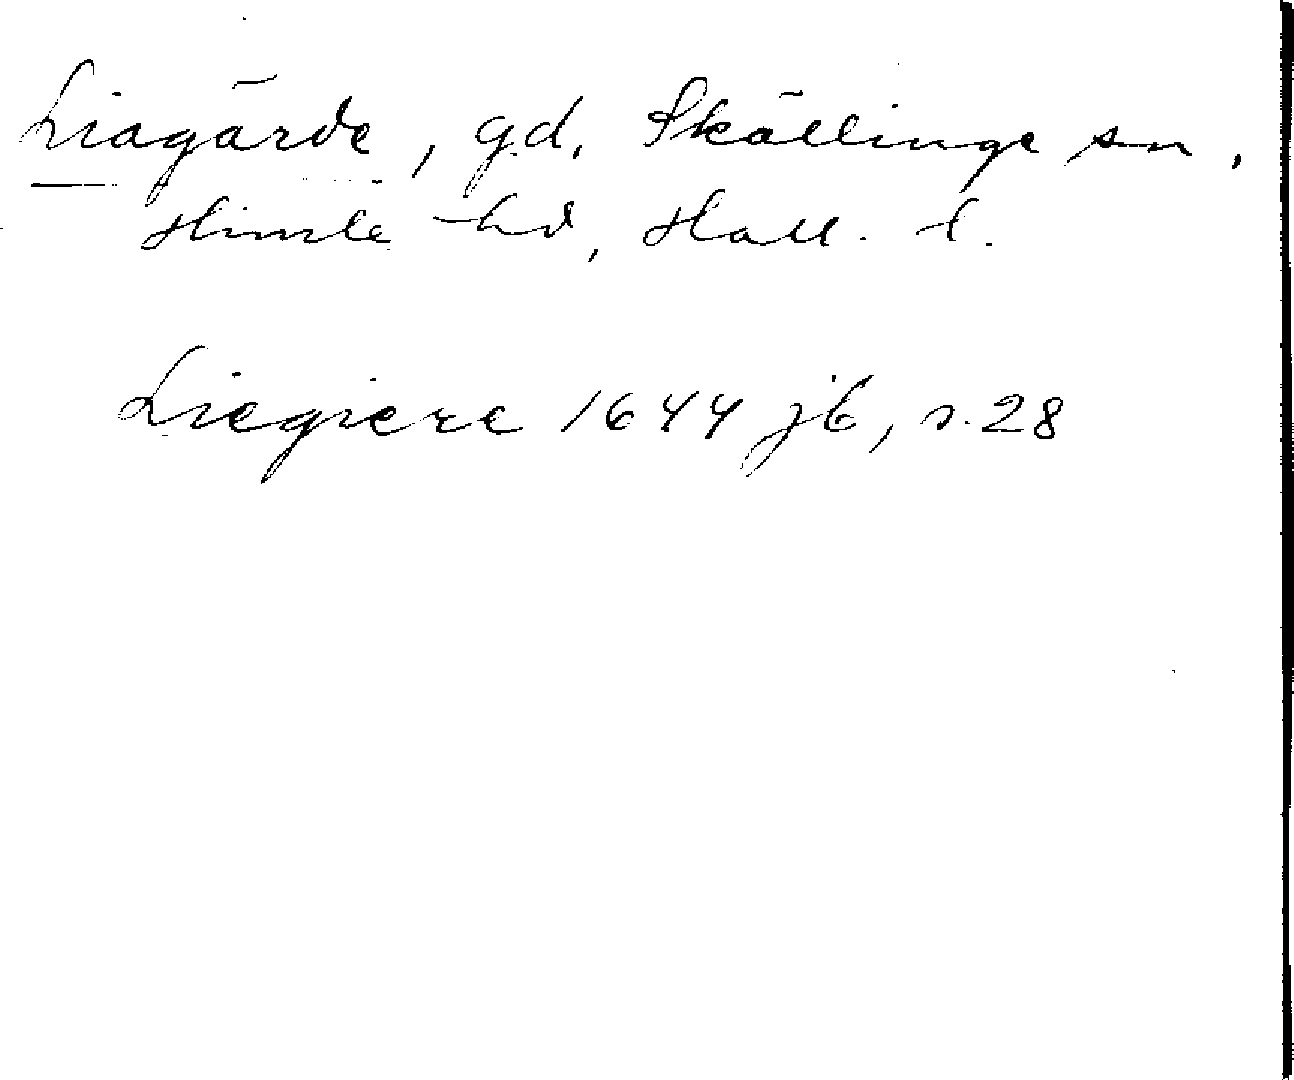 Liagärde, gd, Skällinge sn,
Himle hd, Hall. l.
Liegiere 1644 jb, s. 28